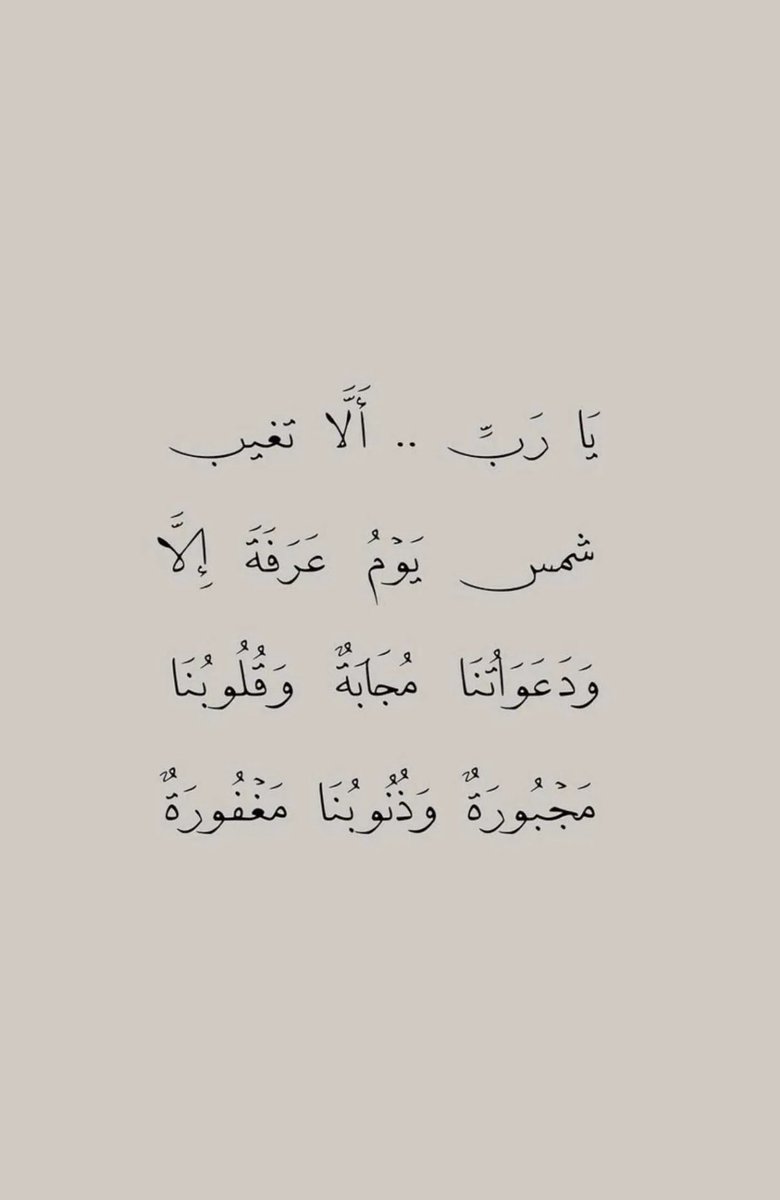 يَا رَبِّ .. أَلَّا تغيب
شمس يَوْمُ عَرَفَةَ إِلَّا
وَدَعَوَاتُنَا مُجَابَةٌ وَقُلُوبُنَا
مَجْبُورَةٌ وَذُنُوبُنَا مَغْفُورَةٌ